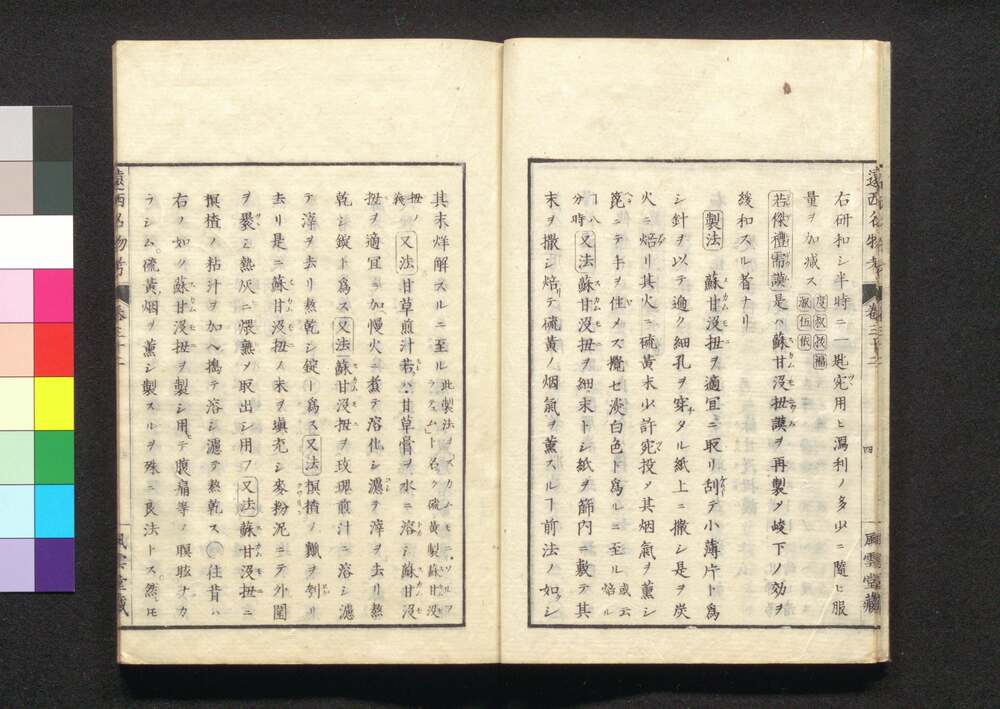 右研和シ半時ニ一匙宛用ヒ瀉利ノ多少ニ隨ヒ服
量ヲ加減ス
若傑禮需謨是ハ蘇甘没扭謨ヲ再製メ峻下ノ効ヲ
緩和スル者ナリ
製法 蘇甘没扭ヲ適宜ニ取リ刮テ小薄片ト爲
シ針ヲ以テ遍ク細孔ヲ穿タル紙上ニ撒シ是ヲ炭
火ニ焙リ其火ニ硫黄末少許宛投メ其烟氣ヲ薫シ
篦ニテ手ヲ住メス攪セ淡白色ト爲ルニ至ル 或云焙ル
八分時 又法蘇甘没扭ヲ細末トシ紙ヲ篩内ニ敷テ其
末ヲ撒シ焙テ硫黄ノ烟氣ヲ薫スルヿ前法ノ如シ
遠西名物考 卷三十二 四 風雲堂藏
其末烊解スルニ至ル 此製法ヲスカムモニ ト名ク硫黄製蘇甘没扭ノ義
又法甘草煎汁若ハ甘草膏ヲ水ニ溶シ蘇甘没
扭ヲ適宜ニ加慢火ニ煮テ溶化シ濾テ滓ヲ去リ熬
乾シ錠ト爲ス又法蘇甘没扭ヲ玫瑰煎汁ニ溶シ濾
テ滓ヲ去リ熬乾シ錠ト爲ス又法榠樝ノ瓤ヲ刳リ
去リ是ニ蘇甘没扭ノ末ヲ填充シ麥粉泥ニテ外圍
ヲ裹ミ熱灰ニ煨熟メ取出シ用フ又法蘇甘没扭ニ
榠樝ノ粘汁ヲ加ヘ擣テ溶シ濾テ熬乾ス〇往昔ハ
右ノ如ク蘇甘没扭ヲ製シ用テ腹痛等ノ瞑眩ナカ
ラシム硫黄烟ヲ薫シ製スルヲ殊ニ良法トス然𪜈
遠西名物考 卷三十二 風雲堂藏